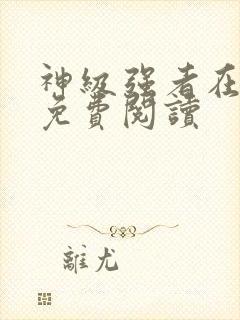 神級强者在
免費閱讀
離尤